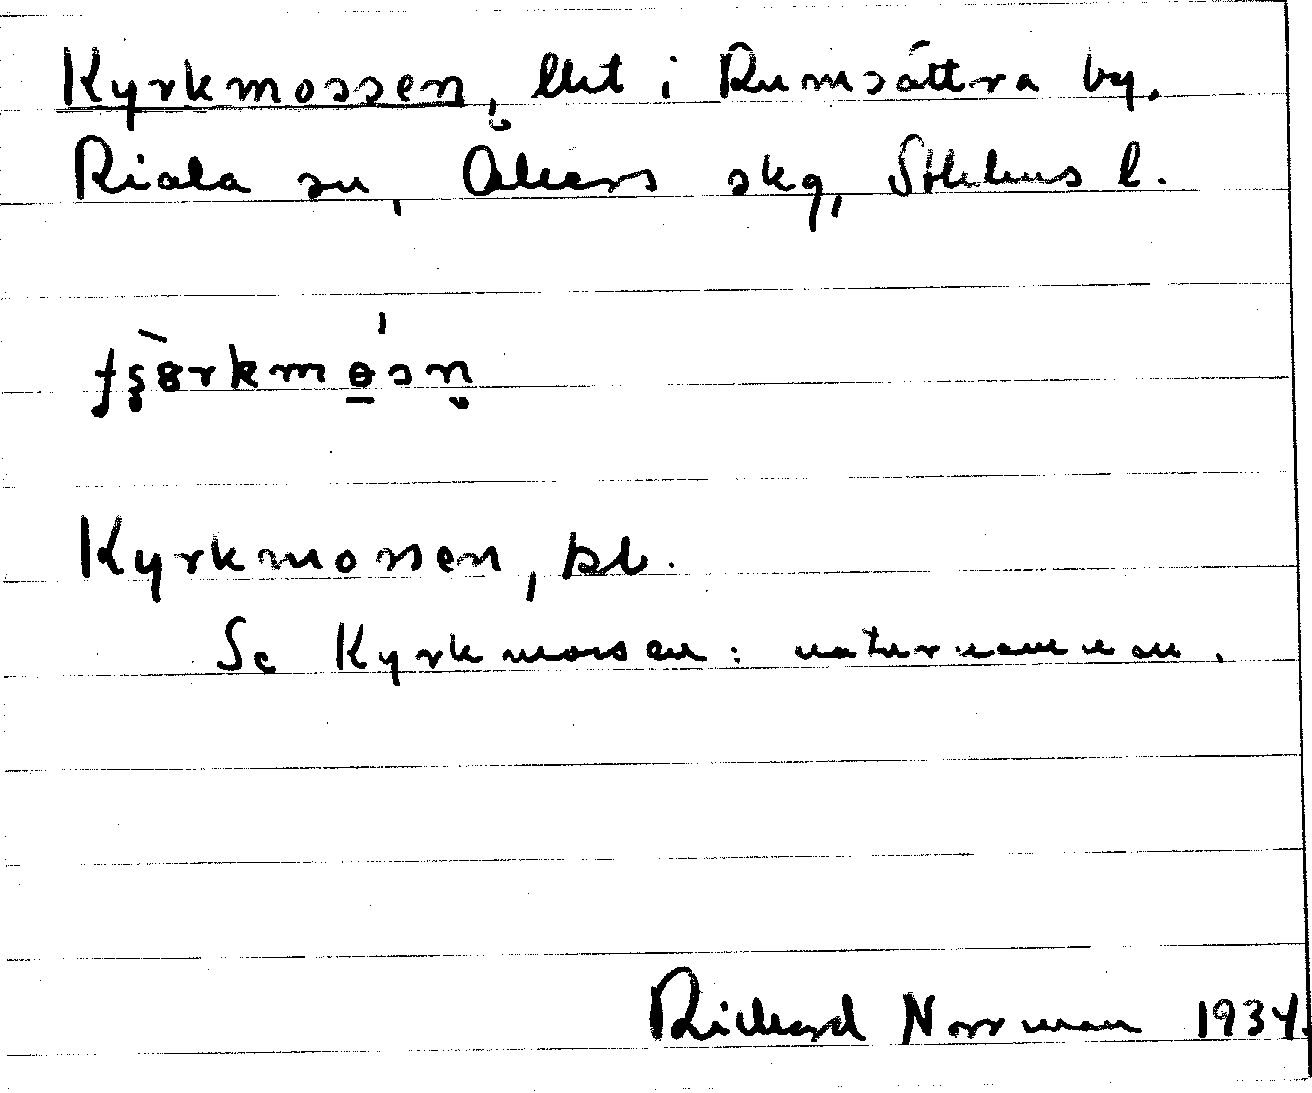 Kyrkmossen, lht i Rumsättra by,
Riala sn, Åkers skg, Sthlms l.
Kyrkmossen, bl.
Se Kyrkmossen: naturnamnen.
Richard Norrman 1934.